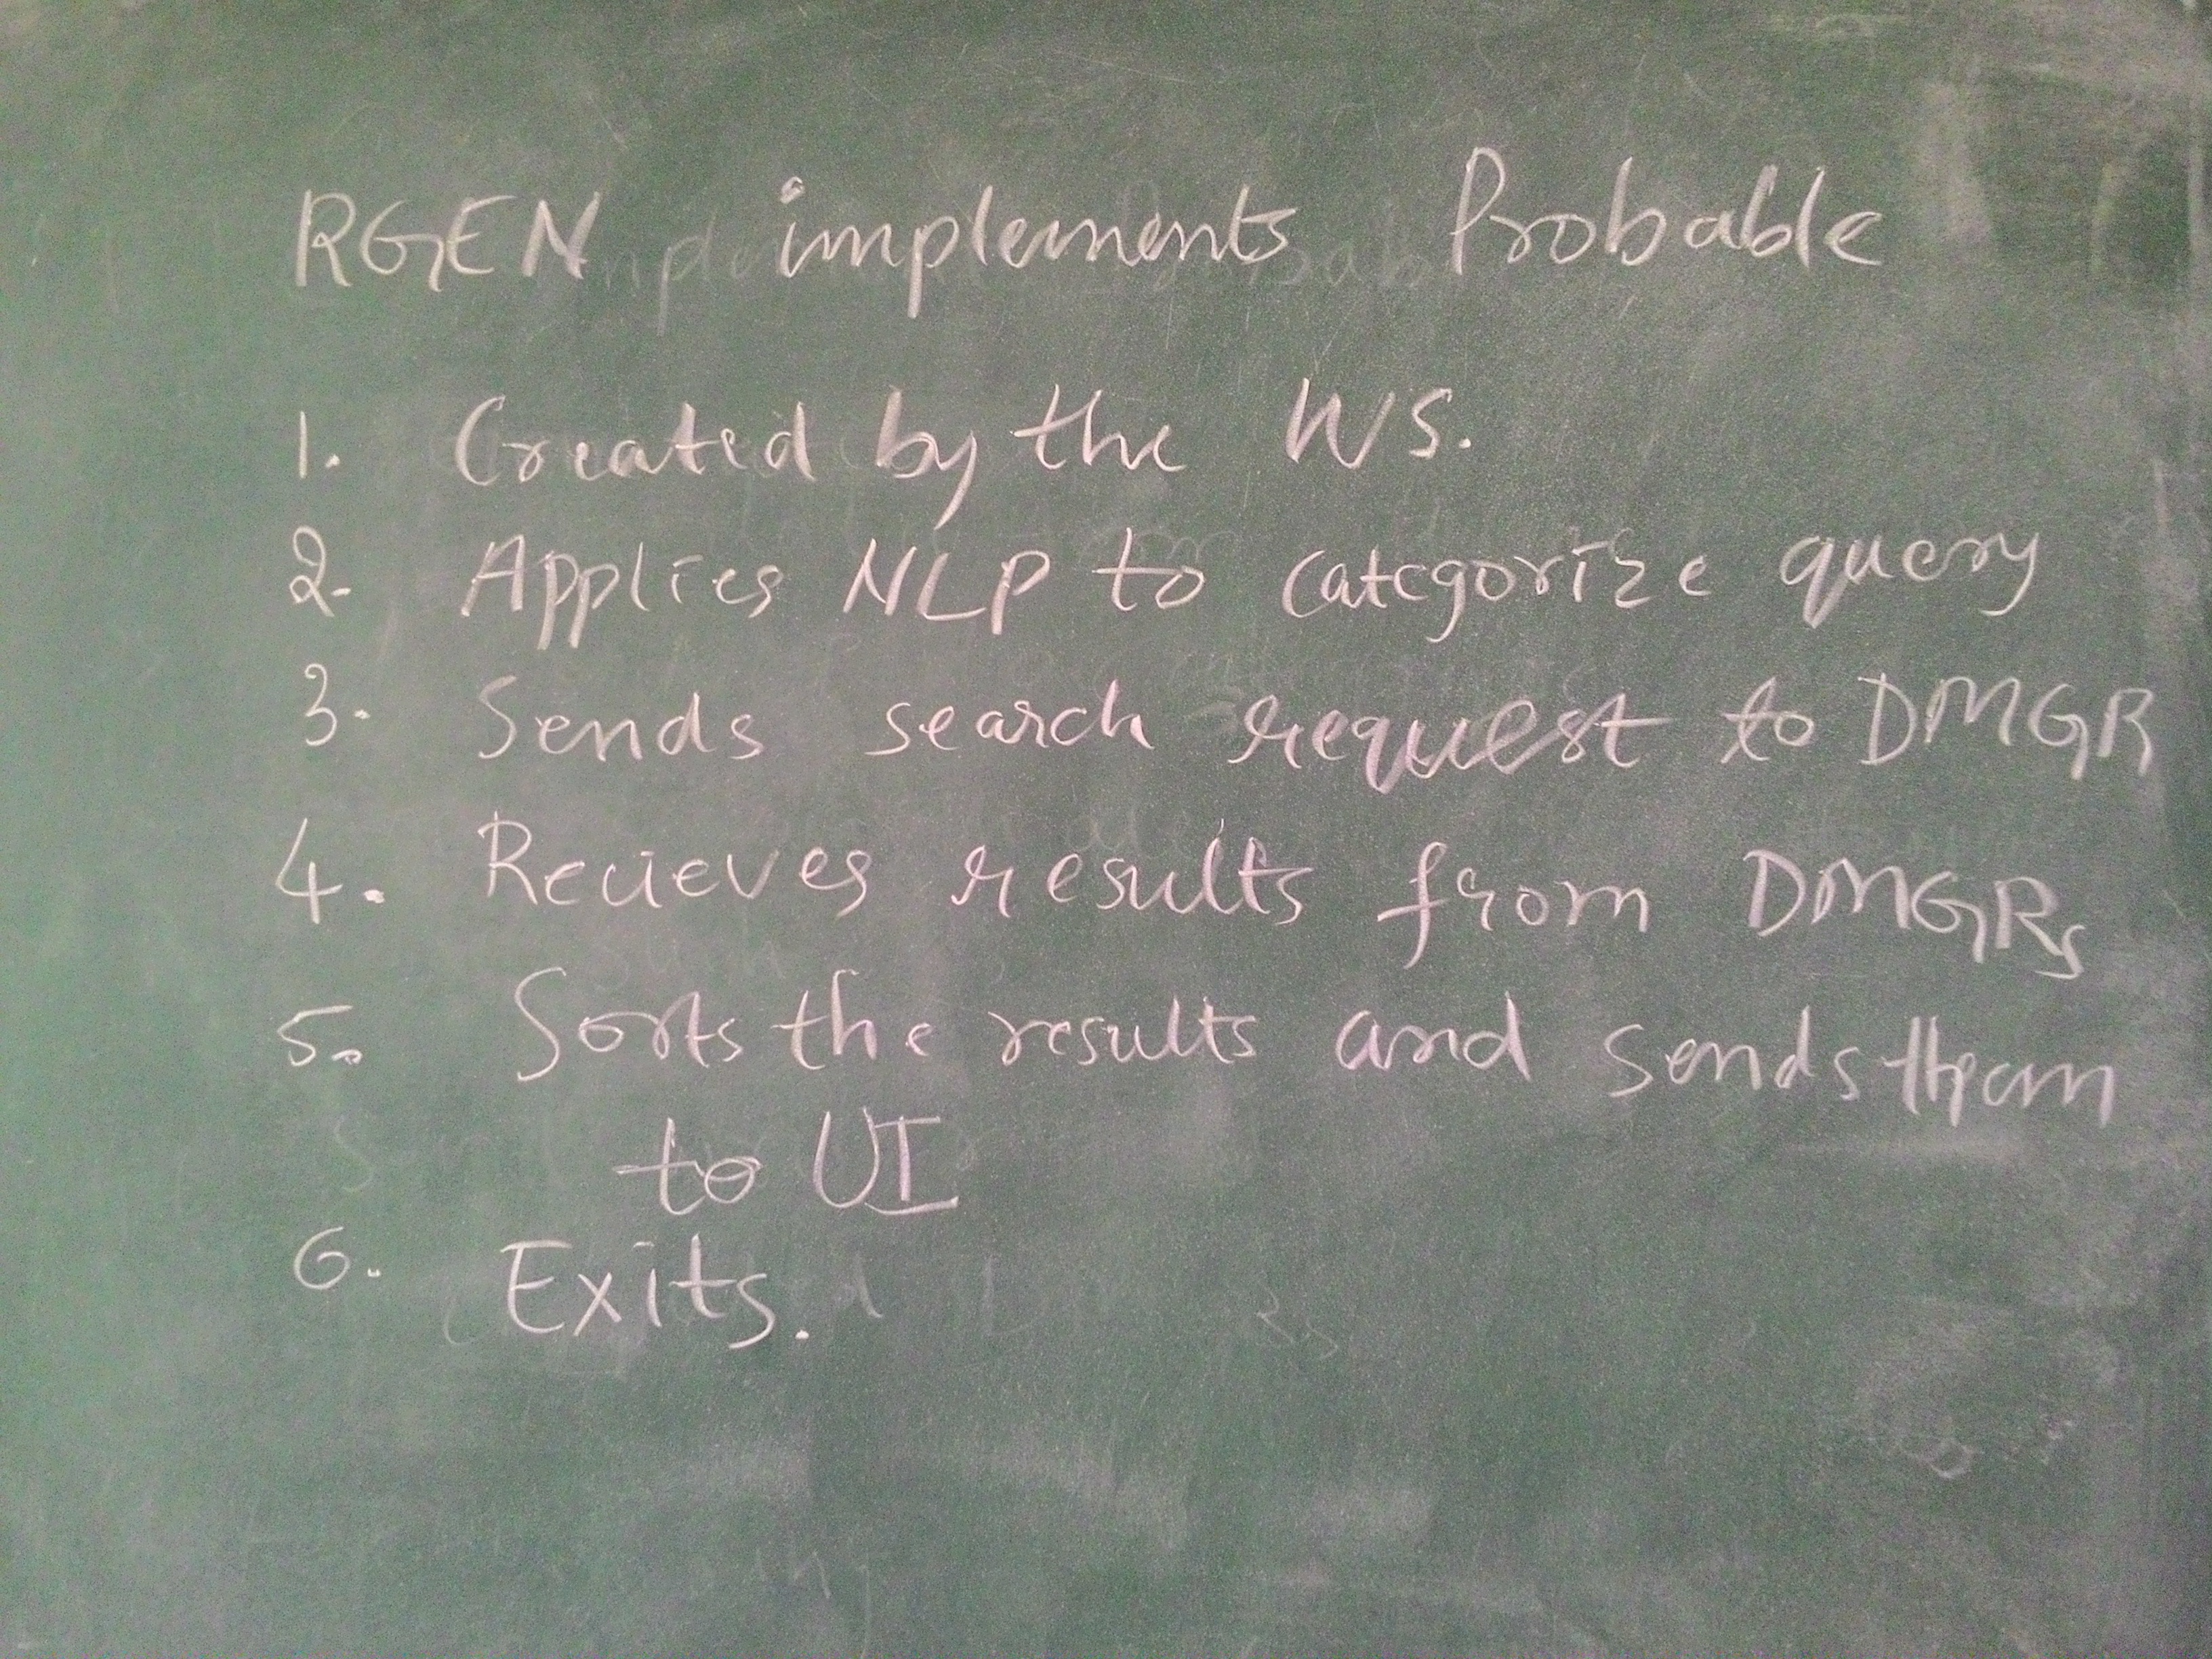 RGEN implements Probable
1. Created by the WS.
2. Applies NLP to categorize query
3. Sends search request to DMGR
4. Recieves results from DMGRs
5. Sorts the results and sends them
to UI
6. Exits.